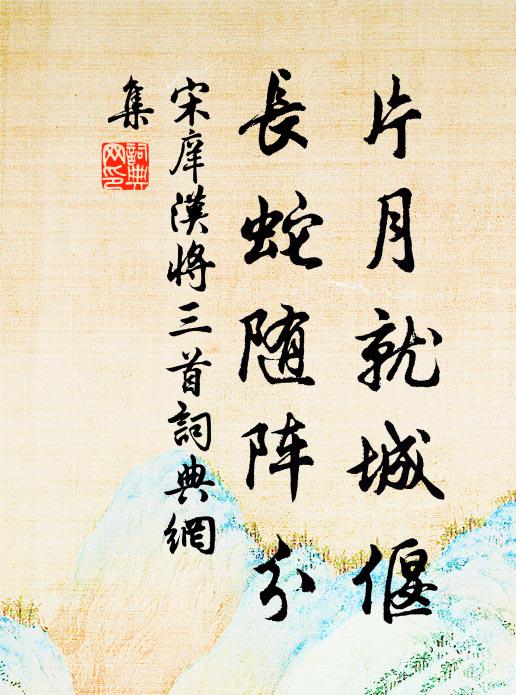 片月就城偃
長蛇随阵分
宋庠漢将三首詞典網
集
詞典
网印